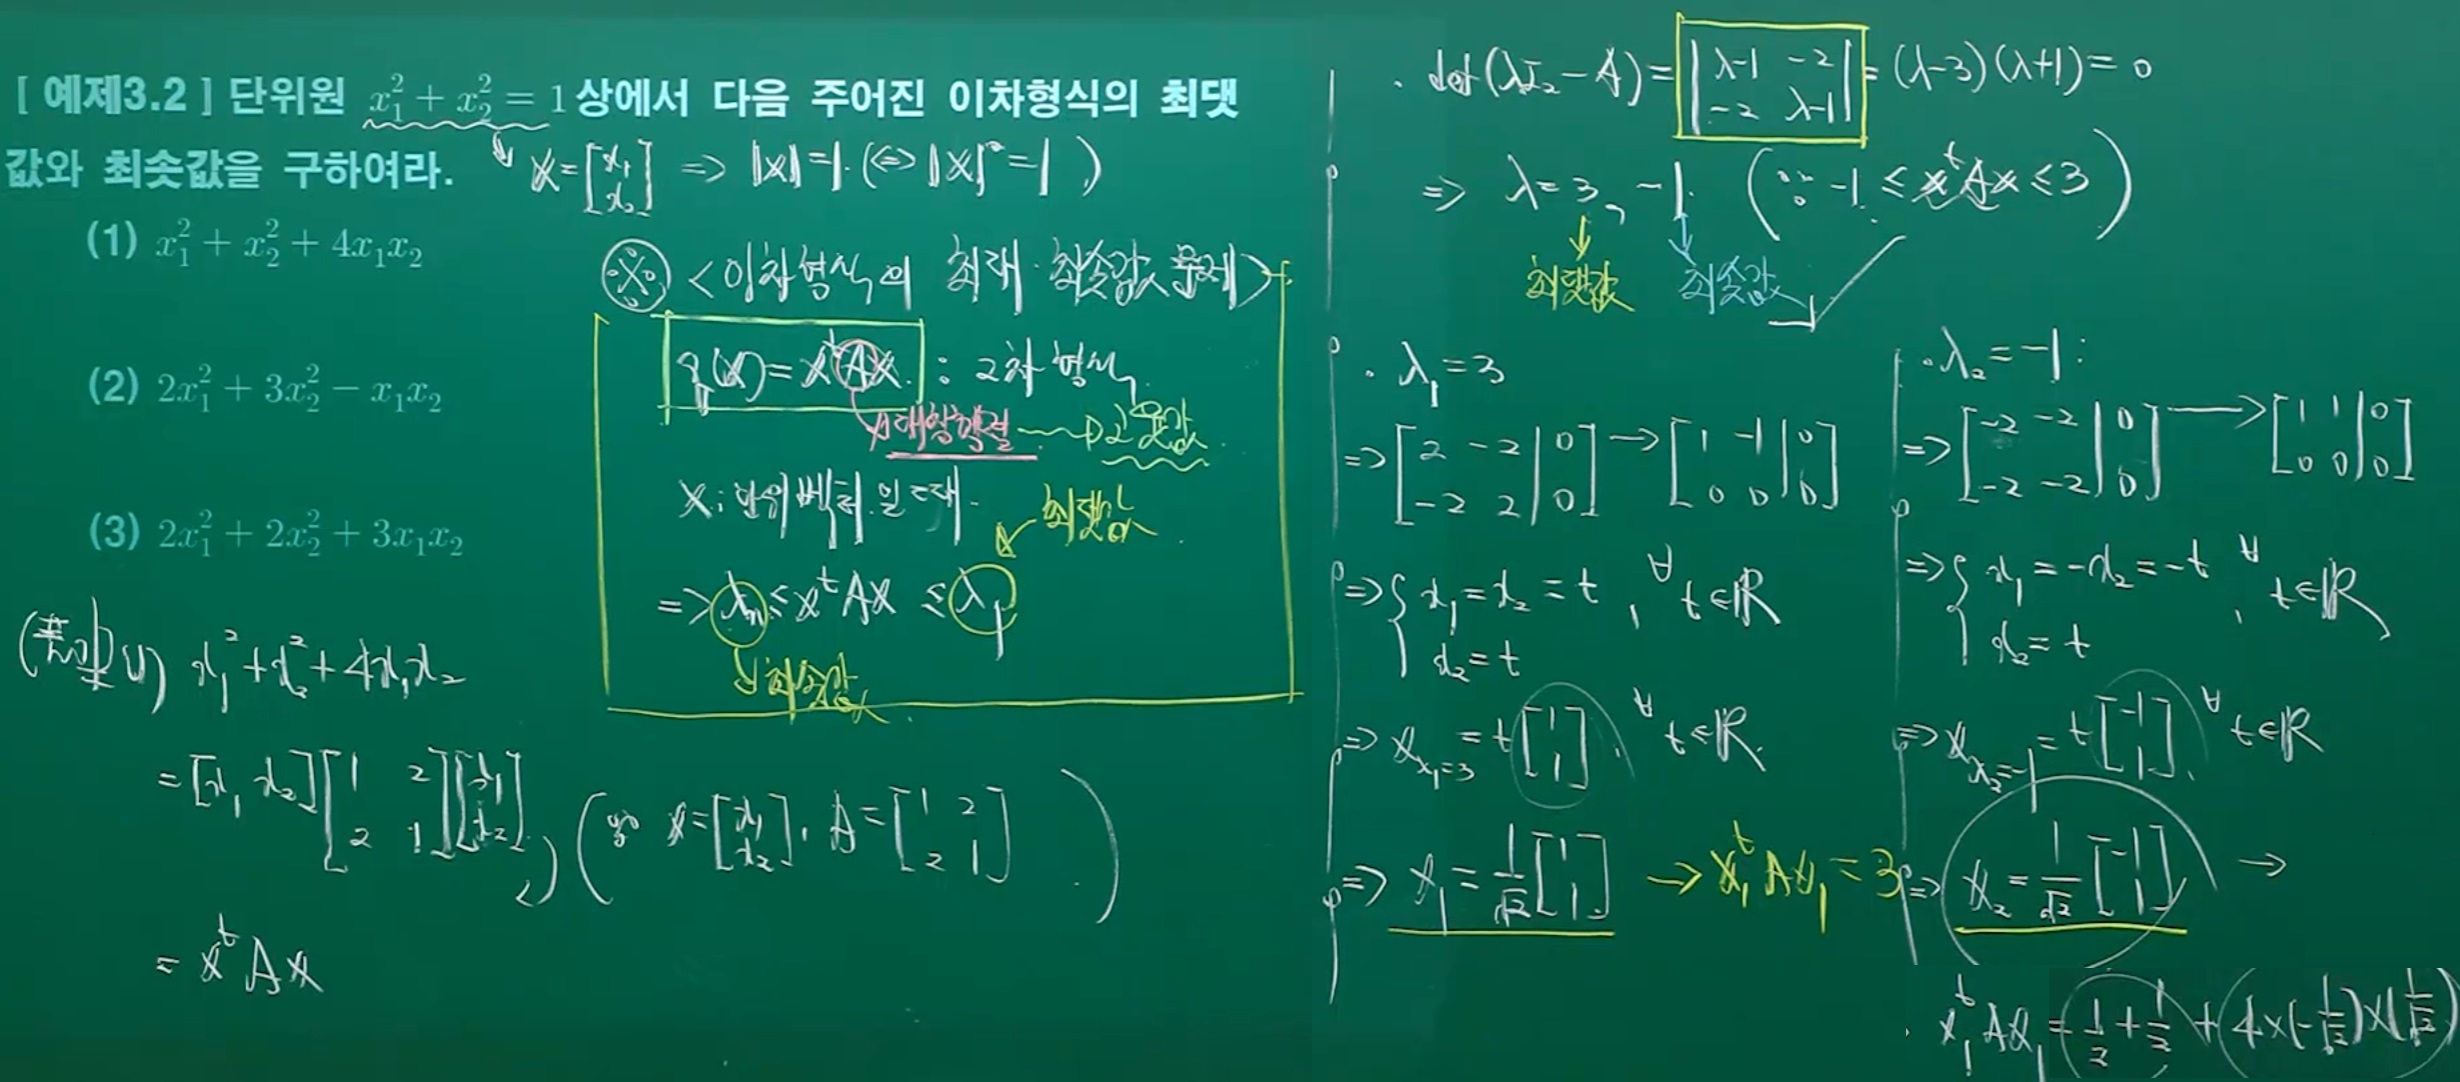 [ 예제3.2 ] 단위원 x₁² + x₂² = 1 상에서 다음 주어진 이차형식의 최댓
값와 최솟값을 구하여라.
x = [x₁; x₂] ⇒ |x| = 1. (⇔ |x|² = 1 )
(1) x₁² + x₂² + 4x₁x₂
(2) 2x₁² + 3x₂² − x₁x₂
(3) 2x₁² + 2x₂² + 3x₁x₂
※ <이차형식의 최대·최솟값 문제>
q(x) = xᵗAx : 2차형식
대칭행렬 → 고윳값
x : 단위벡터일 때.
최댓값
⇒ λₙ ≤ xᵗAx ≤ λ₁
최솟값
(풀이) (1) x₁² + x₂² + 4x₁x₂
= [x₁ x₂][1 2; 2 1][x₁; x₂], ( x = [x₁; x₂], A = [1 2; 2 1] )
= xᵗAx
· det(λI₂ − A) = |λ−1 −2; −2 λ−1| = (λ−3)(λ+1) = 0
⇒ λ = 3, −1. (∵ −1 ≤ xᵗAx ≤ 3)
최댓값 최솟값
· λ₁ = 3
⇒ [2 −2 | 0; −2 2 | 0] → [1 −1 | 0; 0 0 | 0]
⇒ { x₁ = x₂ = t , ∀t∈ℝ
x₂ = t
⇒ x_λ₁=3 = t[1; 1], ∀t∈ℝ.
⇒ x₁ = 1/√2 [1; 1] → x₁ᵗAx₁ = 3
· λ₂ = −1 :
⇒ [−2 −2 | 0; −2 −2 | 0] → [1 1 | 0; 0 0 | 0]
⇒ { x₁ = −x₂ = −t , ∀t∈ℝ
x₂ = t
⇒ x_λ₂=−1 = t[−1; 1], ∀t∈ℝ
⇒ x₂ = 1/√2 [−1; 1] →
· x₁ᵗAx₁ = 1/2 + 1/2 + (4×(−1/√2)×(1/√2))